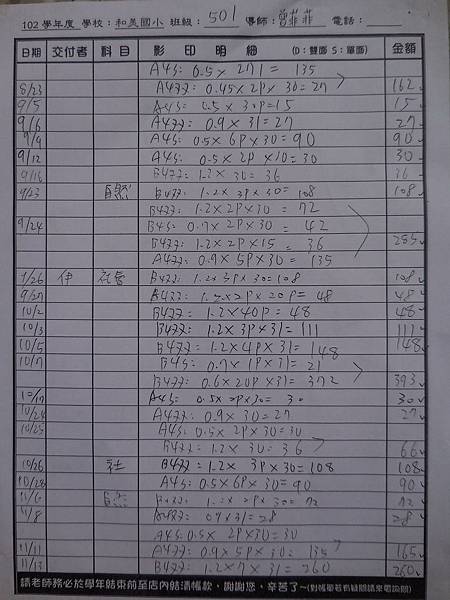 102 學年度 學校：和美國小 班級：501 導師：曾菲菲 電話：
日期 交付者 科目 影印明細 (D：雙面 S：單面) 金額
A4S: 0.5 x 271 = 135
8/23 0.45 x 2P x 30 = 27 162
9/5 A4S: 0.5 x 30P = 15 15
9/6 0.9 x 31 = 27 27
9/9 A4S: 0.5 x 6P x 30 = 90 90
9/12 A4S: 0.5 x 2P x 30 = 30 30
9/16 1.2 x 30 = 36 36
9/23 自然 1.2 x 3P x 30 = 108 108
1.2 x 2P x 30 = 72
9/24 B4S: 0.7 x 2P x 30 = 42
1.2 x 2P x 15 = 36 285
0.9 x 5P x 30 = 135
伊 1.2 x 3P x 30 = 108 108
9/27 1.2 x 2P x 20P = 48 48
10/2 1.2 x 40P = 48 48
10/3 1.2 x 3P x 31 = 111 111
10/5 1.2 x 4P x 31 = 148 148
10/7 B4S: 0.7 x 1P x 31 = 21
0.6 x 20P x 31 = 372 393
A4S: 0.5 x 2P x 30 = 30 30
10/24 0.9 x 30 = 27 27
10/25 A4S: 0.5 x 2P x 30
1.2 x 30 = 36 66
10/26 社 1.2 x 3P x 30 = 108 108
10/28 A4S: 0.5 x 6P x 30 = 90 90
11/6 自然 1.2 x 2P x 30 = 72 72
11/8 0.9 x 31 = 28 28
A4S: 0.5 x 2P x 30 = 30
11/11 0.9 x 5P x 30 = 135 165
11/13 1.2 x 7 x 31 = 260 260
請老師務必於學年結束前至店內結清帳款，謝謝您，辛苦了~(對帳單若有疑問請來電詢問)